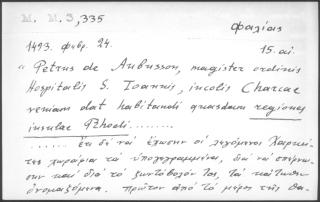 M. M. 3, 335
φαλίας
1493. Φεβρ. 24.
15. αἰ
"Petrus de Aubusson, magister ordinis
Hospitalis S. Ioannis, incolis Charcae
veniam dat habitandi quasdam regiones
insulae Rhodi........
...... ἔτι δὲ νὰ ἔχωσιν οἱ λεγόμενοι Χαρκῖ-
ται χωράφια τὰ ὑπογεγραμμένα, διὰ νὰ σπέρνω-
σιν καὶ διὰ τὸ ζευγολόγιν τους, τὰ κάτωθεν
ὀνομαζόμενα. πρῶτον ἀπὸ τὸ μέρος τῆς θα-